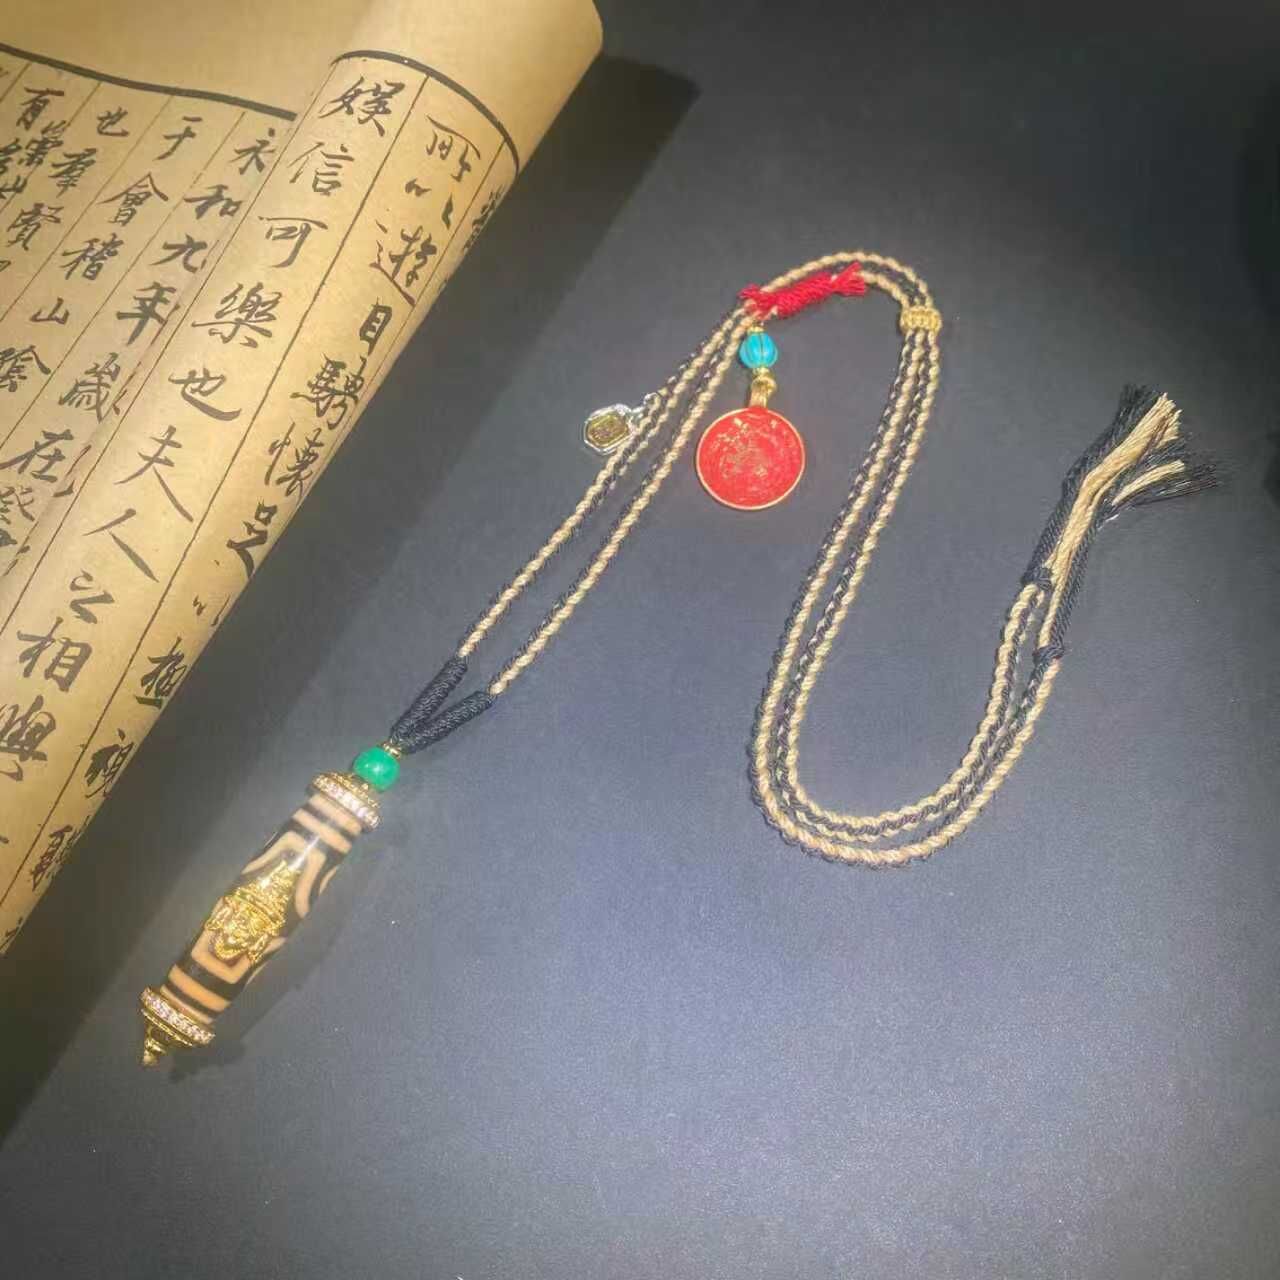 所以遊目騁懷足以極視聽
娛信可樂也夫人之相與
永和九年歲在癸
于會稽山陰
也羣賢
有